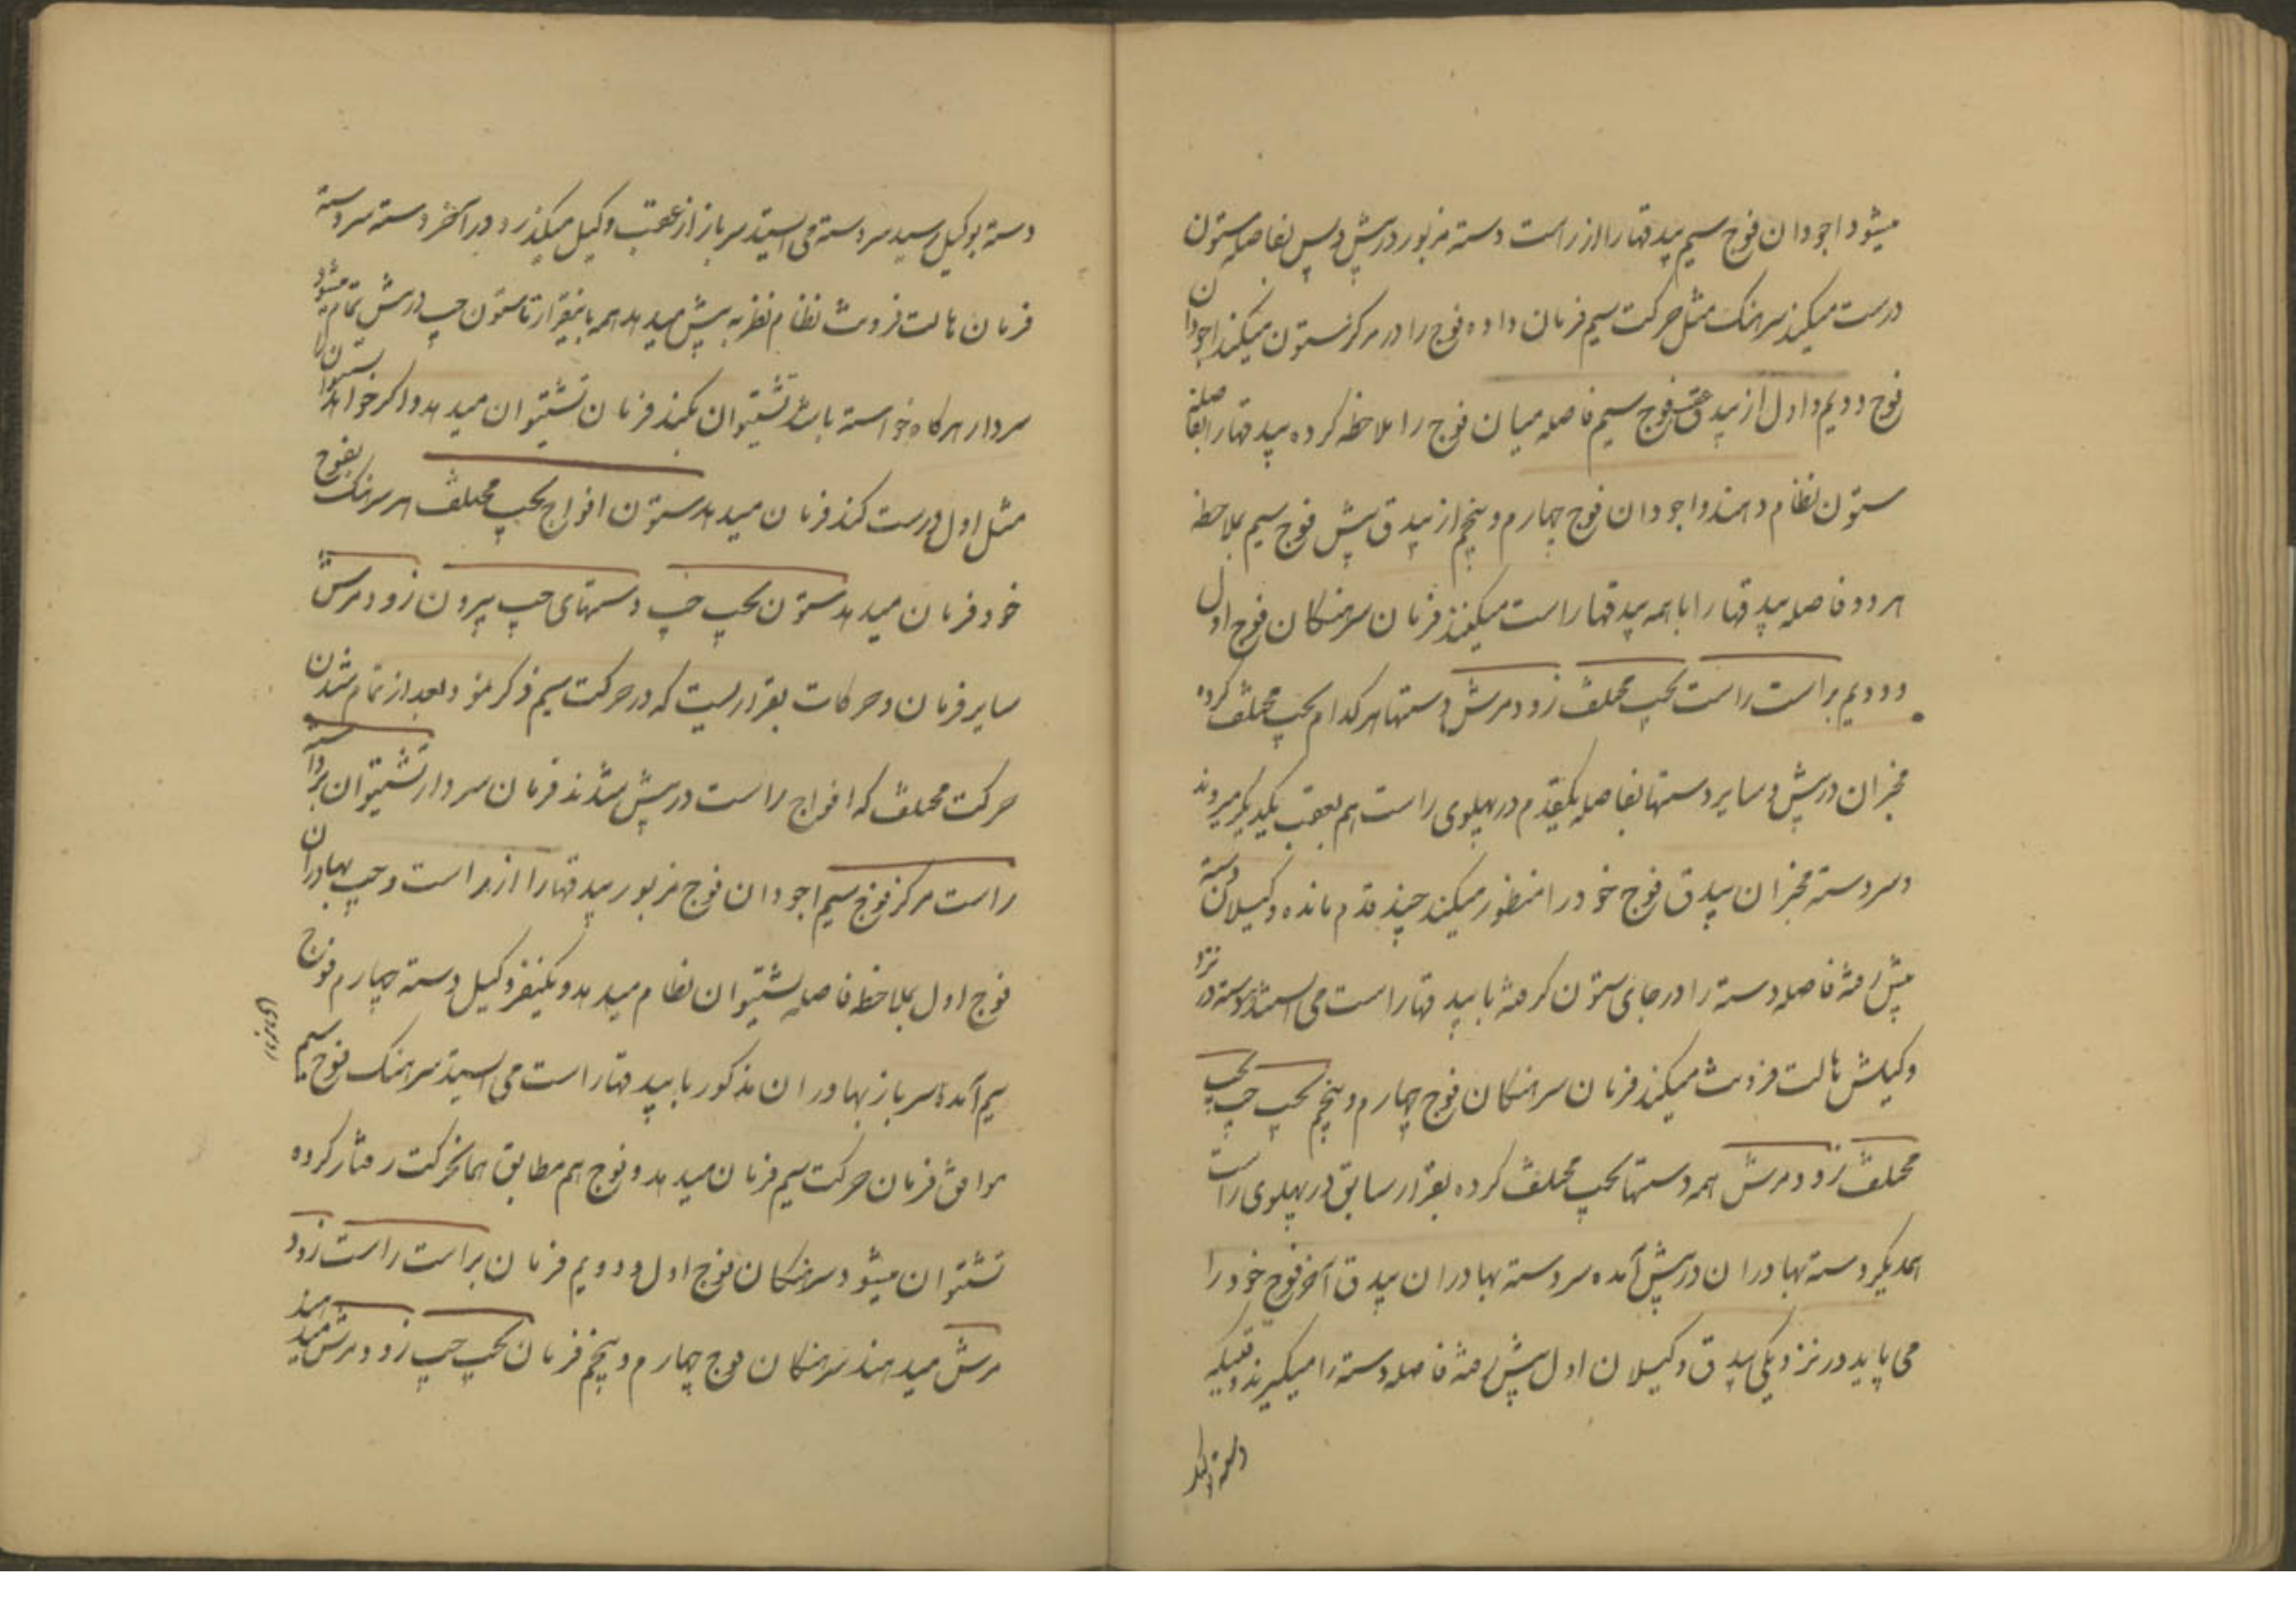 میشود اجودان فوج سیم بیدقها را از راست دسته مزبور در پیش و پس بفاصله ستون
درست میکند سرهنک مثل حرکت سیم فرمان داده فوج را در مرکز ستون میکند اجودان
فوج دویم و اول از بیدق عقب فوج سیم فاصله میان فوج را ملاحظه کرده بیدقها را بفاصله
ستون نظام دهند و اجودان فوج چهارم و پنجم از بیدق پیش فوج سیم بملاحظه
هر دو فاصله بیدقها را با همه بیدقها راست میکنند فرمان سرهنکان فوج اول
و دویم براست راست بچپ مختلف زود مرش دستها هر کدام بچپ مختلف کرده
مخبران در پیش و سایر دستها بفاصله یکقدم در پهلوی راست هم بعقب یکدیکر میروند
و سردسته مخبران بیدق فوج خود را منظور میکند چند قدم مانده وکیلان دسته
پیش رفته فاصله دسته را در جای ستون کرفته با بیدقها راست می ایستند دسته در نزد
وکیلش هالت فرونت میکند فرمان سرهنکان فوج چهارم و پنجم بچپ چپ بچپ
مختلف زود مرش همه دستها بچپ مختلف کرده بقرار سابق در پهلوی راست
همدیکر دسته بهادران در پیش آمده سردسته بهادران بیدق آخر فوج خود را
می پاید در نزدیکی بیدق وکیلان اول پیش رفته فاصله دسته را میکیرند وقتیکه
دسته بوکیل رسید سردسته می ایستد سرباز از عقب وکیل میکذرد در آخر دسته سردسته
فرمان هالت فرونت نظام نظر به پیش میدهد همه باینقرار تا ستون چپ در پیش تمام میشود
سردار هرکاه خواسته باشد تشتیوان بکند فرمان تشتیوان میدهد و اکر خواهد ستون را
مثل اول درست کند فرمان میدهد ستون افواج بچپ مختلف هر سرهنک بفوج
خود فرمان میدهد ستون بچپ چپ دستهای چپ بیرون زود مرش
سایر فرمان و حرکات بقراریست که در حرکت سیم ذکر نمود بعد از تمام شدن
حرکت مختلف که افواج راست در پیش شدند فرمان سردار تشتیوان بر دسته
راست مرکز فوج سیم اجودان فوج مزبور بیدقها را از راست و چپ بهادران
فوج اول بملاحظه فاصله تشتیوان نظام میدهد و یکنفر وکیل دسته چهارم فوج
سیم آمده سرباز بهادران مذکور با بیدقها راست می ایستد سرهنک فوج سیم
موافق فرمان حرکت سیم فرمان میدهد و فوج هم مطابق همانحرکت رفتار کرده
تشتیوان میشود سرهنکان فوج اول و دویم فرمان براست راست زود
مرش میدهند سرهنکان فوج چهارم و پنجم فرمان بچپ چپ زود مرش میدهند